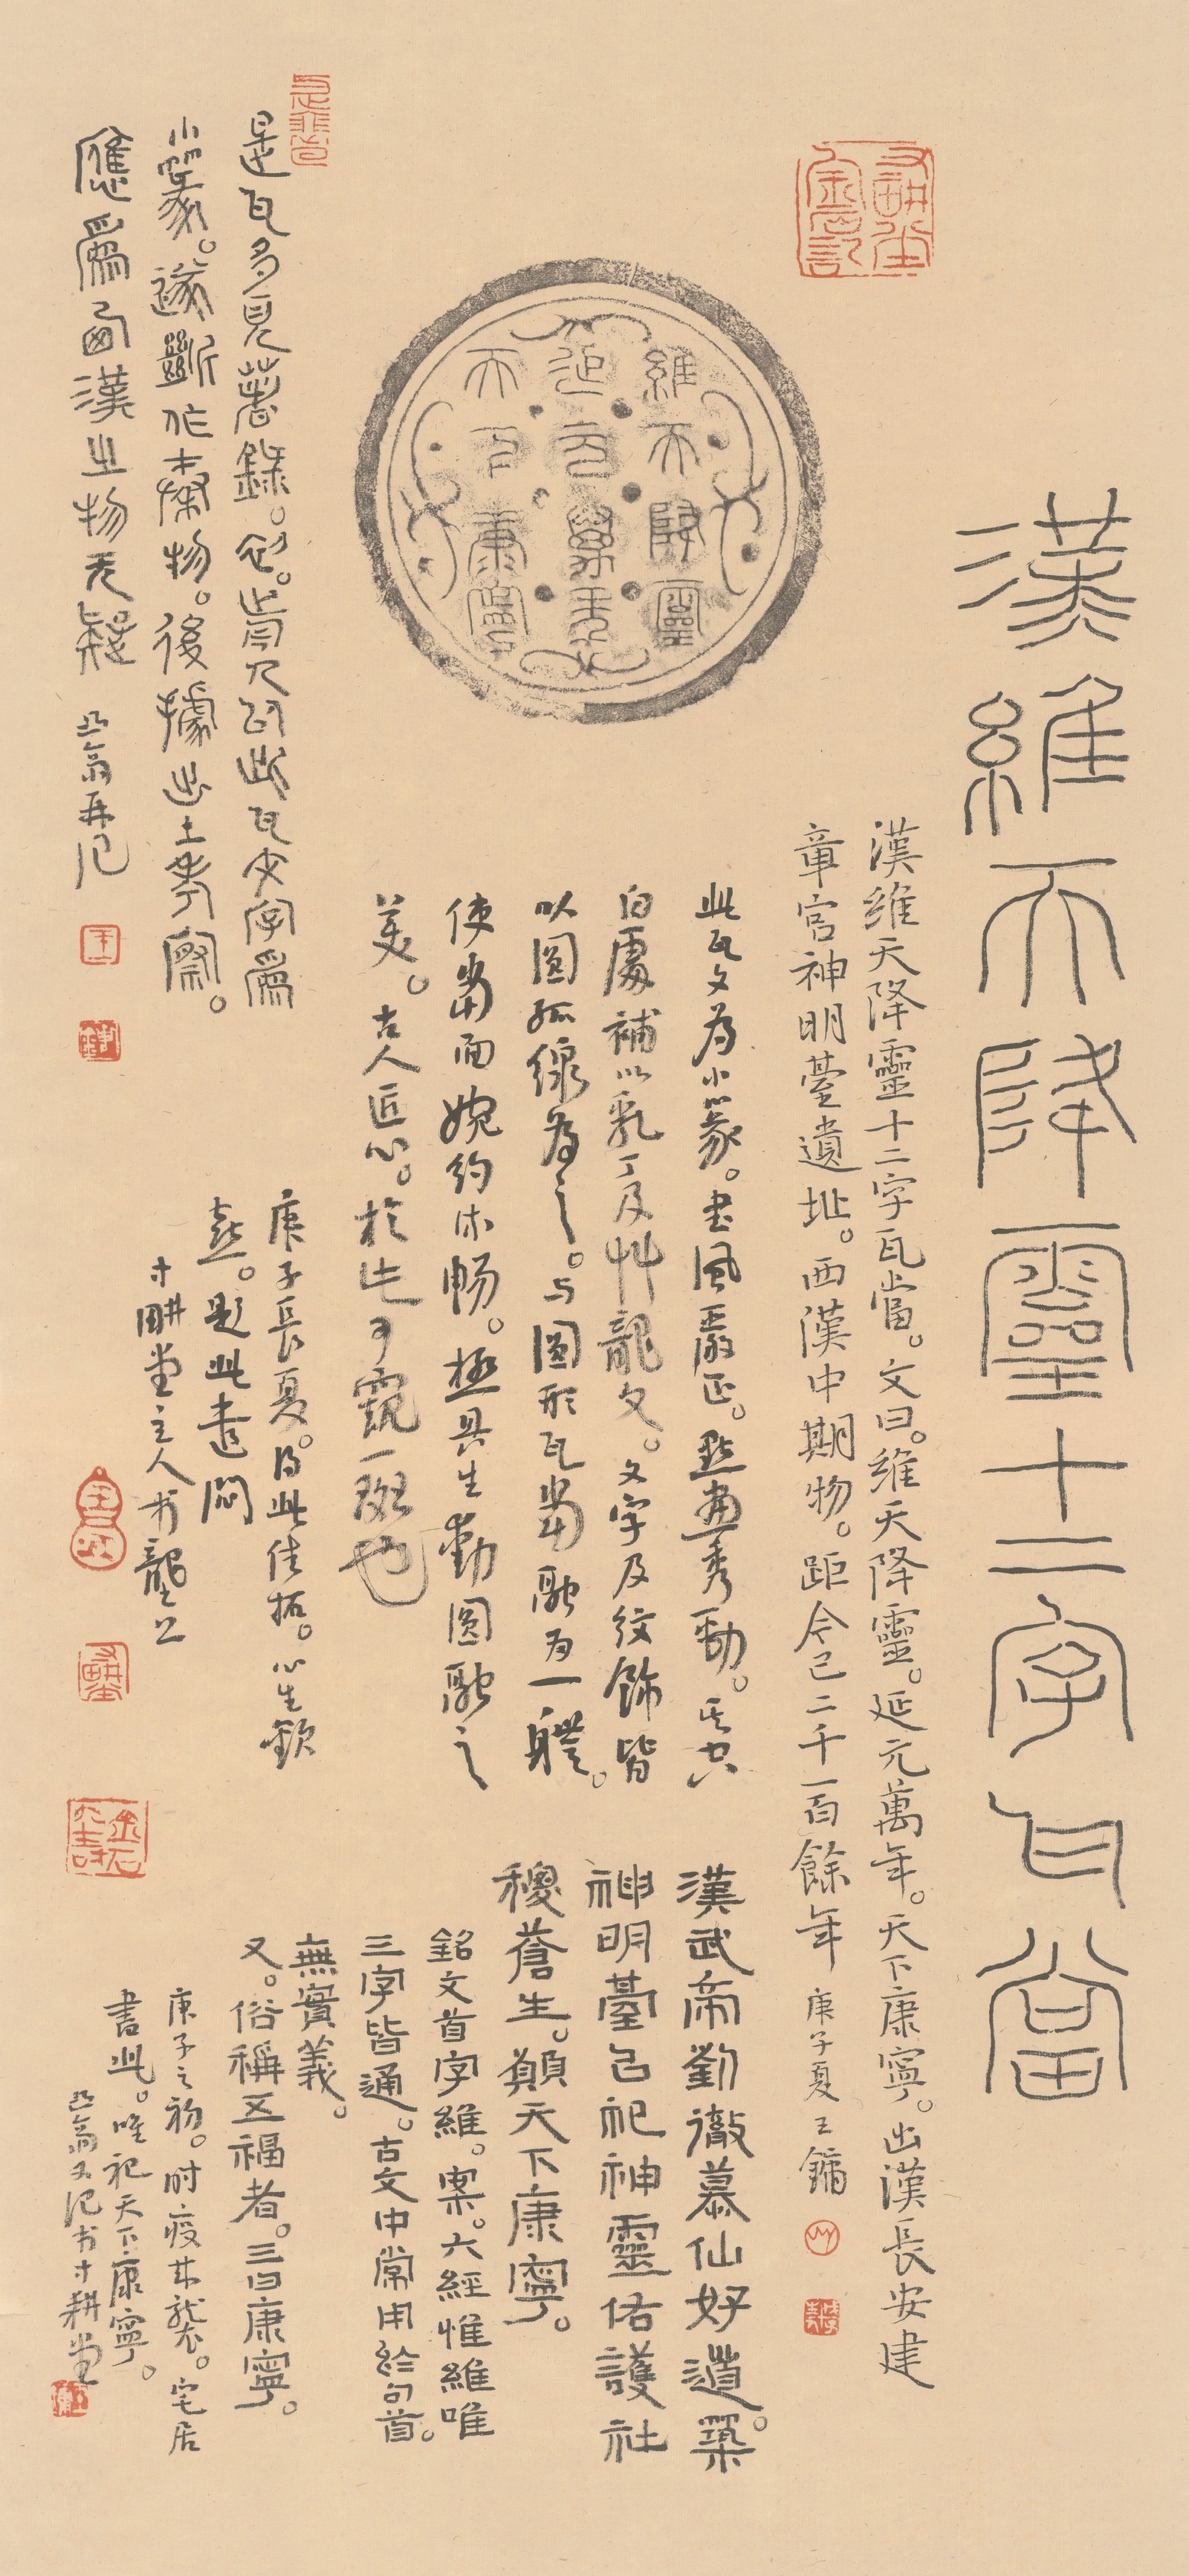 漢維天降靈十二字瓦當
漢維天降靈十二字瓦當。文曰。維天降靈。延元萬年。天下康寧。出漢長安建
章宮神明臺遺址。西漢中期物。距今已二千一百餘年 庚子夏王鏞
維天降靈
延元萬年
天下康寧
此瓦文為小篆。書風嚴正。點畫秀勁。其空
白處補以乳丁及艸龍文。文字及紋飾皆
以圓弧線為之。与圓形瓦當融為一體。
使畫面婉約流暢。極具生動圓融之
美。古人匠心。於此可窺一斑也
庚子長夏。得此佳拓。心生歡
喜。題此遣悶
寸耕堂主人書
漢武帝劉徹慕仙好道。築
神明臺以祀神靈佑護社
稷蒼生。願天下康寧。
銘文首字維。案。六經惟維唯
三字皆通。古文中常用於句首。
無實義。
又。俗稱五福者。三曰康寧。
庚子之初。時疫來襲。宅居
書此。唯祀天下康寧。
凸翁又記於寸耕堂
是瓦多見著錄。初。皆以為此瓦文字為
小篆。遂斷作秦物。後據出土考察。
應為西漢之物无疑 凸翁再記